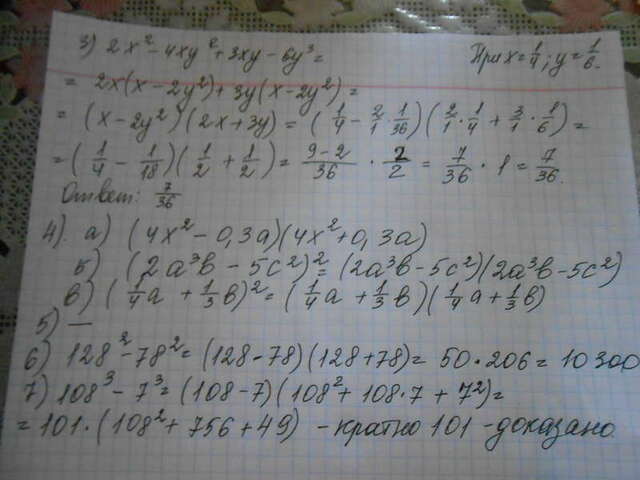 3) 2x² - 4xy² + 3xy - 6y³ = При x = 1/4; y = 1/6.
= 2x(x - 2y²) + 3y(x - 2y²) =
= (x - 2y²)(2x + 3y) = (1/4 - 2/1 · 1/36)(2/1 · 1/4 + 3/1 · 1/6) =
= (1/4 - 1/18)(1/2 + 1/2) = (9-2)/36 · 2/2 = 7/36 · 1 = 7/36.
Ответ: 7/36
4). а) (4x² - 0,3a)(4x² + 0,3a)
б) (2a³b - 5c²)² = (2a³b - 5c²)(2a³b - 5c²)
в) (1/4a + 1/3b)² = (1/4a + 1/3b)(1/4a + 1/3b)
5) —
6) 128² - 78² = (128 - 78)(128 + 78) = 50 · 206 = 10300
7) 108³ - 7³ = (108 - 7)(108² + 108 · 7 + 7²) =
= 101 · (108² + 756 + 49) - кратно 101 - доказано.